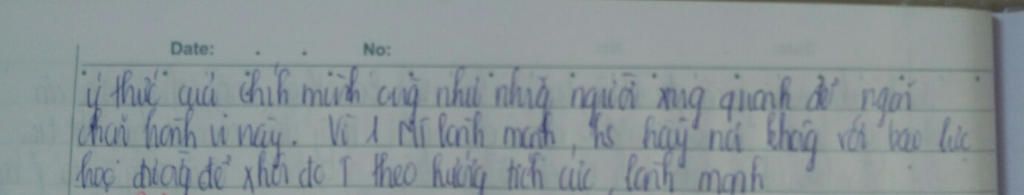 Date: . . No:
ý thức quả chính mình cũg như nhữg người xug quanh để ngăn
chặn hành vi này. Vì 1 MT lành mạnh, hs hãy nói khôg với bạo lực
học đườg để XH do T theo hướg tích cực, lành mạnh